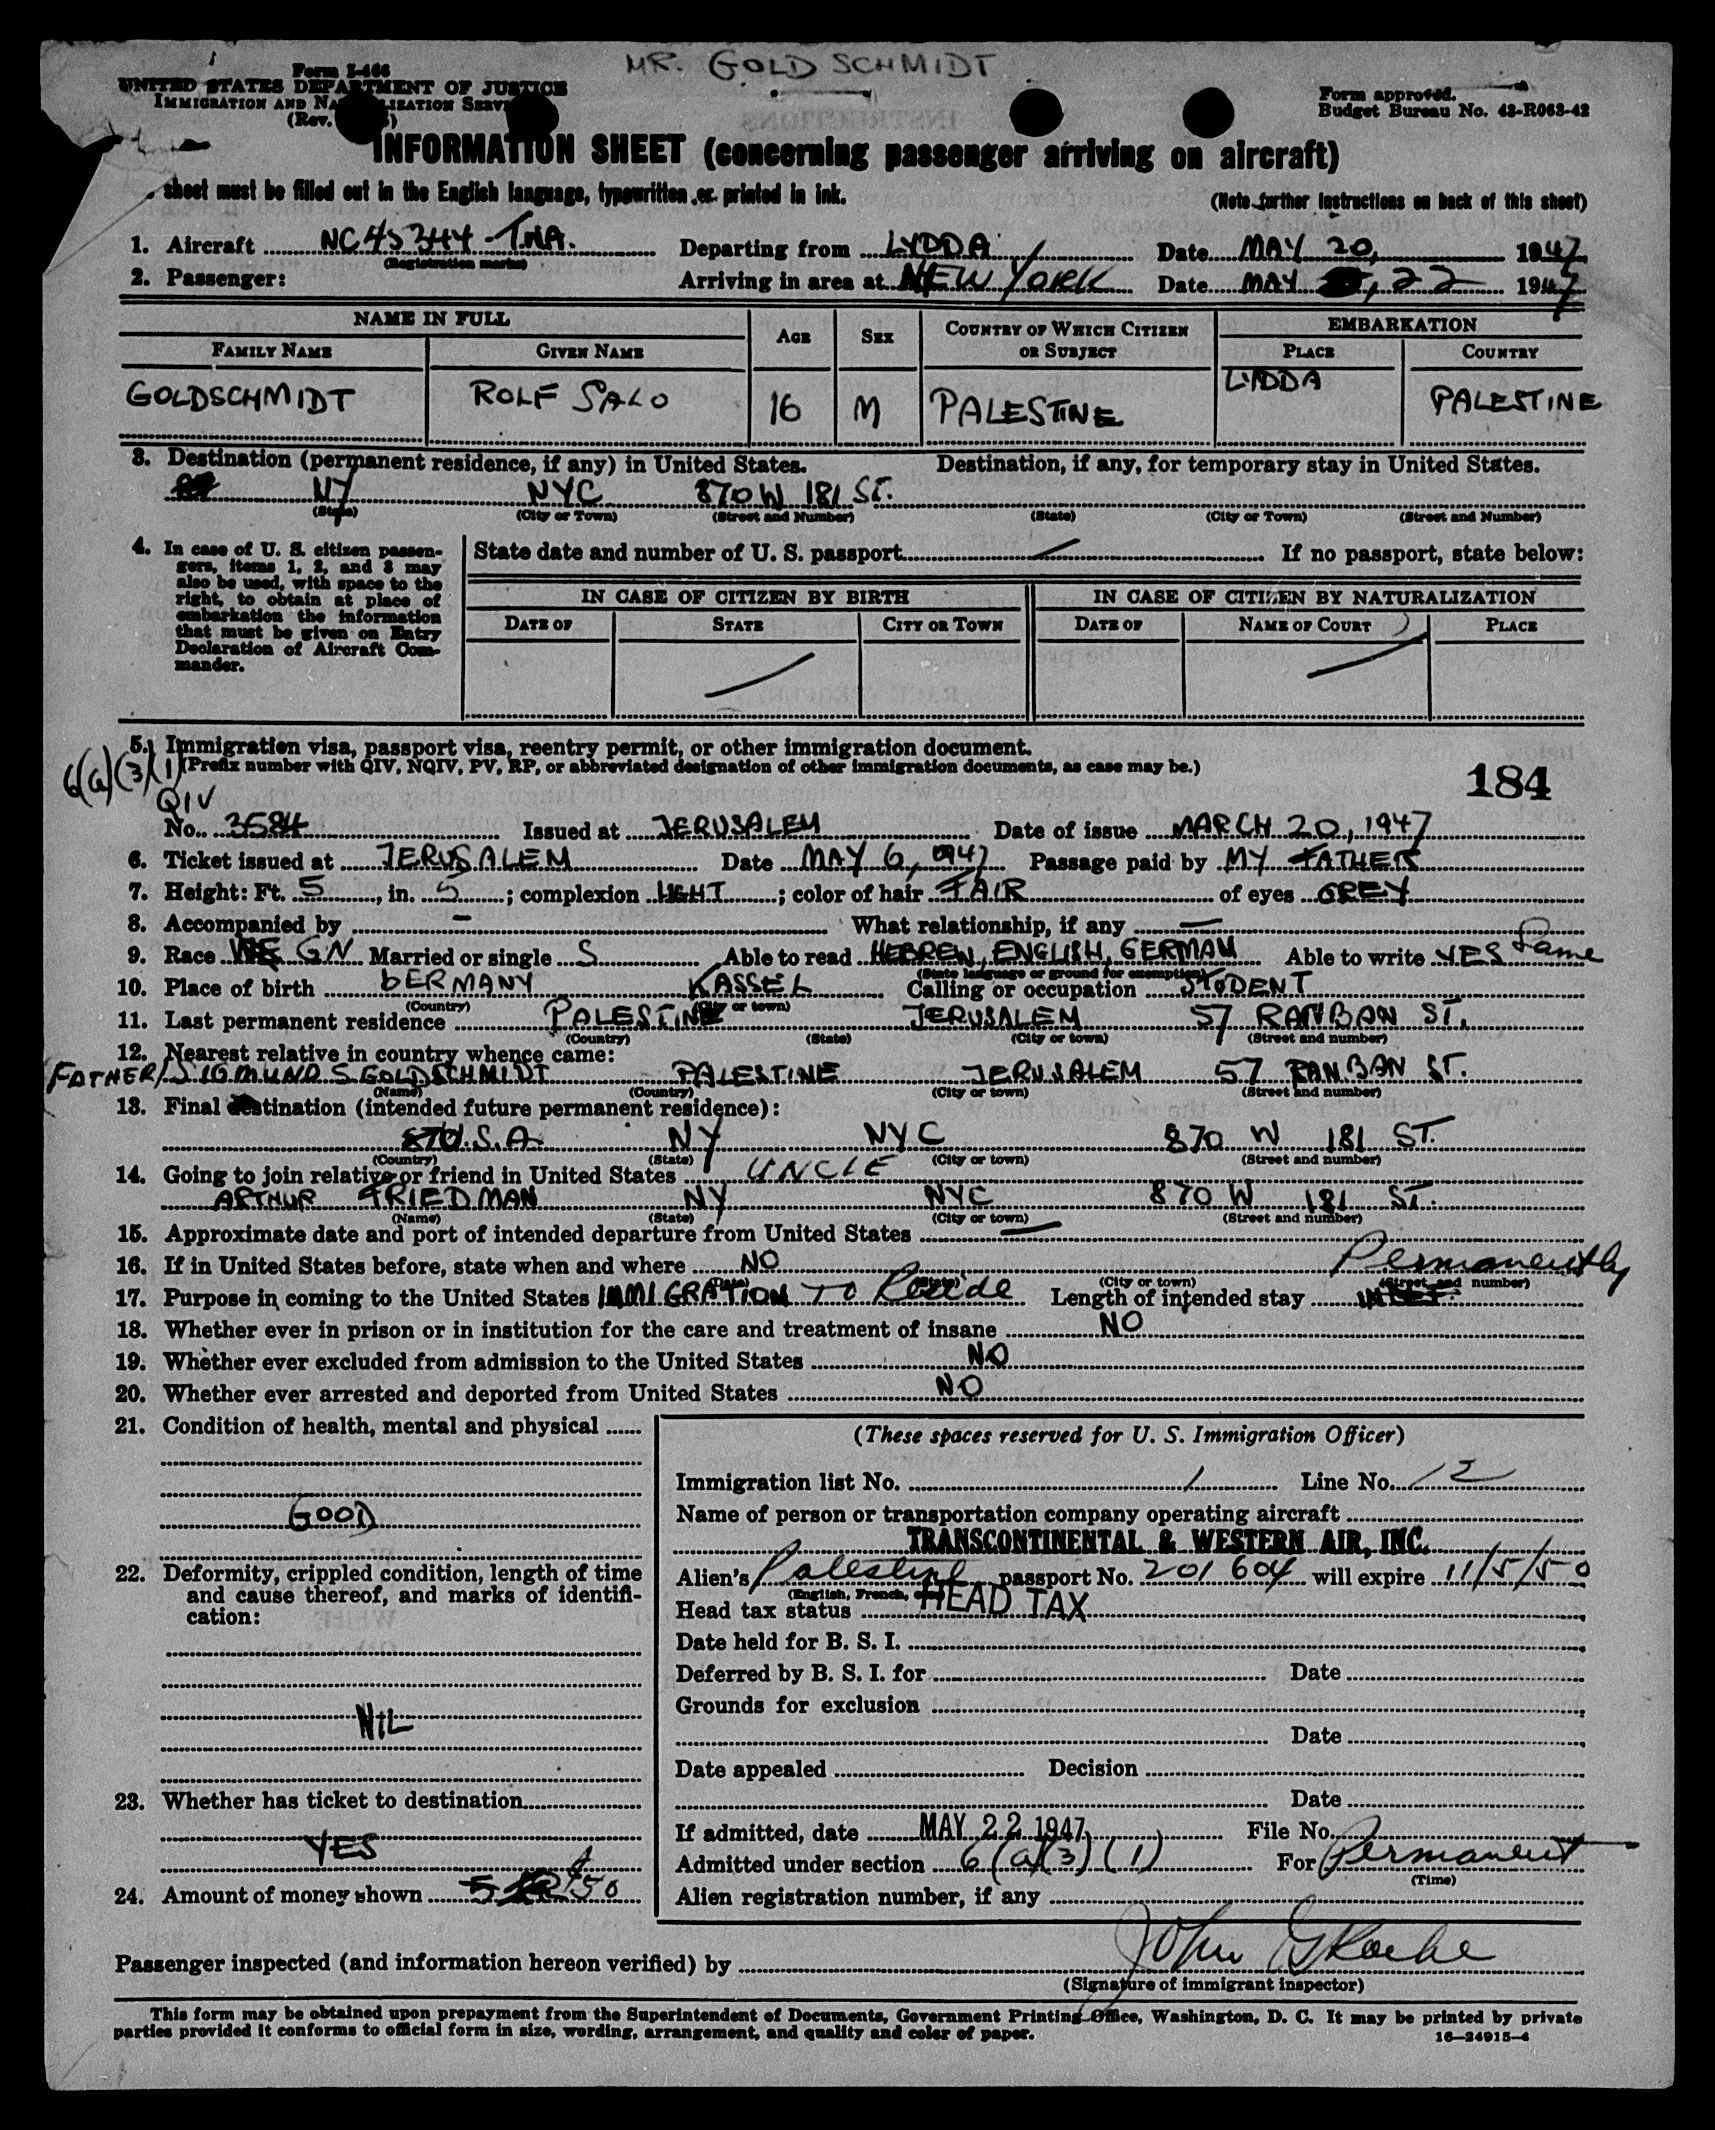 MR. GOLDSCHMIDT
Form I-466
UNITED STATES DEPARTMENT OF JUSTICE
IMMIGRATION AND NATURALIZATION SERVICE
(Rev.
Form approved.
Budget Bureau No. 43-R063-42
INFORMATION SHEET (concerning passenger arriving on aircraft)
sheet must be filled out in the English language, typewritten or printed in ink.
(Note further instructions on back of this sheet)
1. Aircraft NC45344-TWA. Departing from LYDDA Date MAY 20, 1947
(Registration marks)
2. Passenger: Arriving in area at NEW YORK Date MAY 22 1947
NAME IN FULL AGE SEX COUNTRY OF WHICH CITIZEN OR SUBJECT EMBARKATION
FAMILY NAME GIVEN NAME PLACE COUNTRY
GOLDSCHMIDT ROLF SALO 16 M PALESTINE LYDDA PALESTINE
3. Destination (permanent residence, if any) in United States. Destination, if any, for temporary stay in United States.
NY NYC 870 W 181 ST.
(State) (City or Town) (Street and Number) (State) (City or Town) (Street and Number)
4. In case of U. S. citizen passen-
gers, items 1, 2, and 3 may
also be used, with space to the
right, to obtain at place of
embarkation the information
that must be given on Entry
Declaration of Aircraft Com-
mander.
State date and number of U. S. passport If no passport, state below:
IN CASE OF CITIZEN BY BIRTH IN CASE OF CITIZEN BY NATURALIZATION
DATE OF STATE CITY OR TOWN DATE OF NAME OF COURT PLACE
5. Immigration visa, passport visa, reentry permit, or other immigration document.
6(a)(3)(1) (Prefix number with QIV, NQIV, PV, RP, or abbreviated designation of other immigration documents, as case may be.)
184
QIV
No. 3584 Issued at JERUSALEM Date of issue MARCH 20, 1947
6. Ticket issued at JERUSALEM Date MAY 6, 1947 Passage paid by MY FATHER
7. Height: Ft. 5, in. 5; complexion LIGHT; color of hair FAIR of eyes GREY
8. Accompanied by — What relationship, if any —
9. Race GN Married or single S Able to read HEBREW, ENGLISH, GERMAN Able to write YES Same
(State language or ground for exemption)
10. Place of birth GERMANY KASSEL Calling or occupation STUDENT
(Country) (City or town)
11. Last permanent residence PALESTINE JERUSALEM 57 RANBAN ST.
(Country) (State) (City or town) (Street and number)
12. Nearest relative in country whence came:
FATHER/SIGMUND S GOLDSCHMIDT PALESTINE JERUSALEM 57 RANBAN ST.
(Name) (Country) (City or town) (Street and number)
13. Final destination (intended future permanent residence):
U.S.A. NY NYC 870 W 181 ST.
(Country) (State) (City or town) (Street and number)
14. Going to join relative or friend in United States UNCLE
ARTHUR FRIEDMAN NY NYC 870 W 181 ST.
(Name) (State) (City or town) (Street and number)
15. Approximate date and port of intended departure from United States —
16. If in United States before, state when and where NO
(Date) (State) (City or town) (Street and number)
Permanently
17. Purpose in coming to the United States IMMIGRATION To Reside Length of intended stay
18. Whether ever in prison or in institution for the care and treatment of insane NO
19. Whether ever excluded from admission to the United States NO
20. Whether ever arrested and deported from United States NO
21. Condition of health, mental and physical
GOOD
22. Deformity, crippled condition, length of time
and cause thereof, and marks of identifi-
cation:
NIL
23. Whether has ticket to destination
YES
24. Amount of money shown $50
(These spaces reserved for U. S. Immigration Officer)
Immigration list No. 1 Line No. 12
Name of person or transportation company operating aircraft
TRANSCONTINENTAL & WESTERN AIR, INC.
Alien's Palestine passport No. 201604 will expire 11/5/50
(English, French, etc.)
Head tax status HEAD TAX
Date held for B. S. I.
Deferred by B. S. I. for Date
Grounds for exclusion
Date
Date appealed Decision
Date
If admitted, date MAY 22 1947 File No.
Admitted under section 6(a)(3)(1) For Permanent
(Time)
Alien registration number, if any
Passenger inspected (and information hereon verified) by John
(Signature of immigrant inspector)
This form may be obtained upon prepayment from the Superintendent of Documents, Government Printing Office, Washington, D. C. It may be printed by private
parties provided it conforms to official form in size, wording, arrangement, and quality and color of paper.
16—24915-4